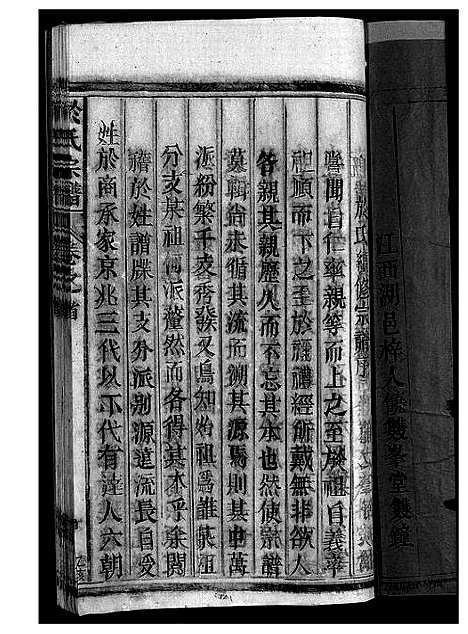 江西湖邑梓人徐雙峯堂製鐫
於氏續修宗譜序
嘗聞自仁率親等而上之至於祖自義率
祖順而下之至於禰禮經所載無非欲人
各親其親歷久而不忘其本也然使宗譜
莫輯尙未循其流而溯其源焉則其中萬
派紛繁千支秀發又烏知始祖爲誰某祖
分支某祖何派釐然而各得其本乎余閱
於姓譜牒其支分派别源遠流長自受
姓於商承家京兆三代以下代有達人六朝
於氏宗譜 卷之首